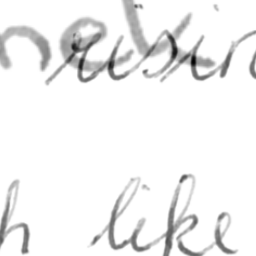 risin
h like